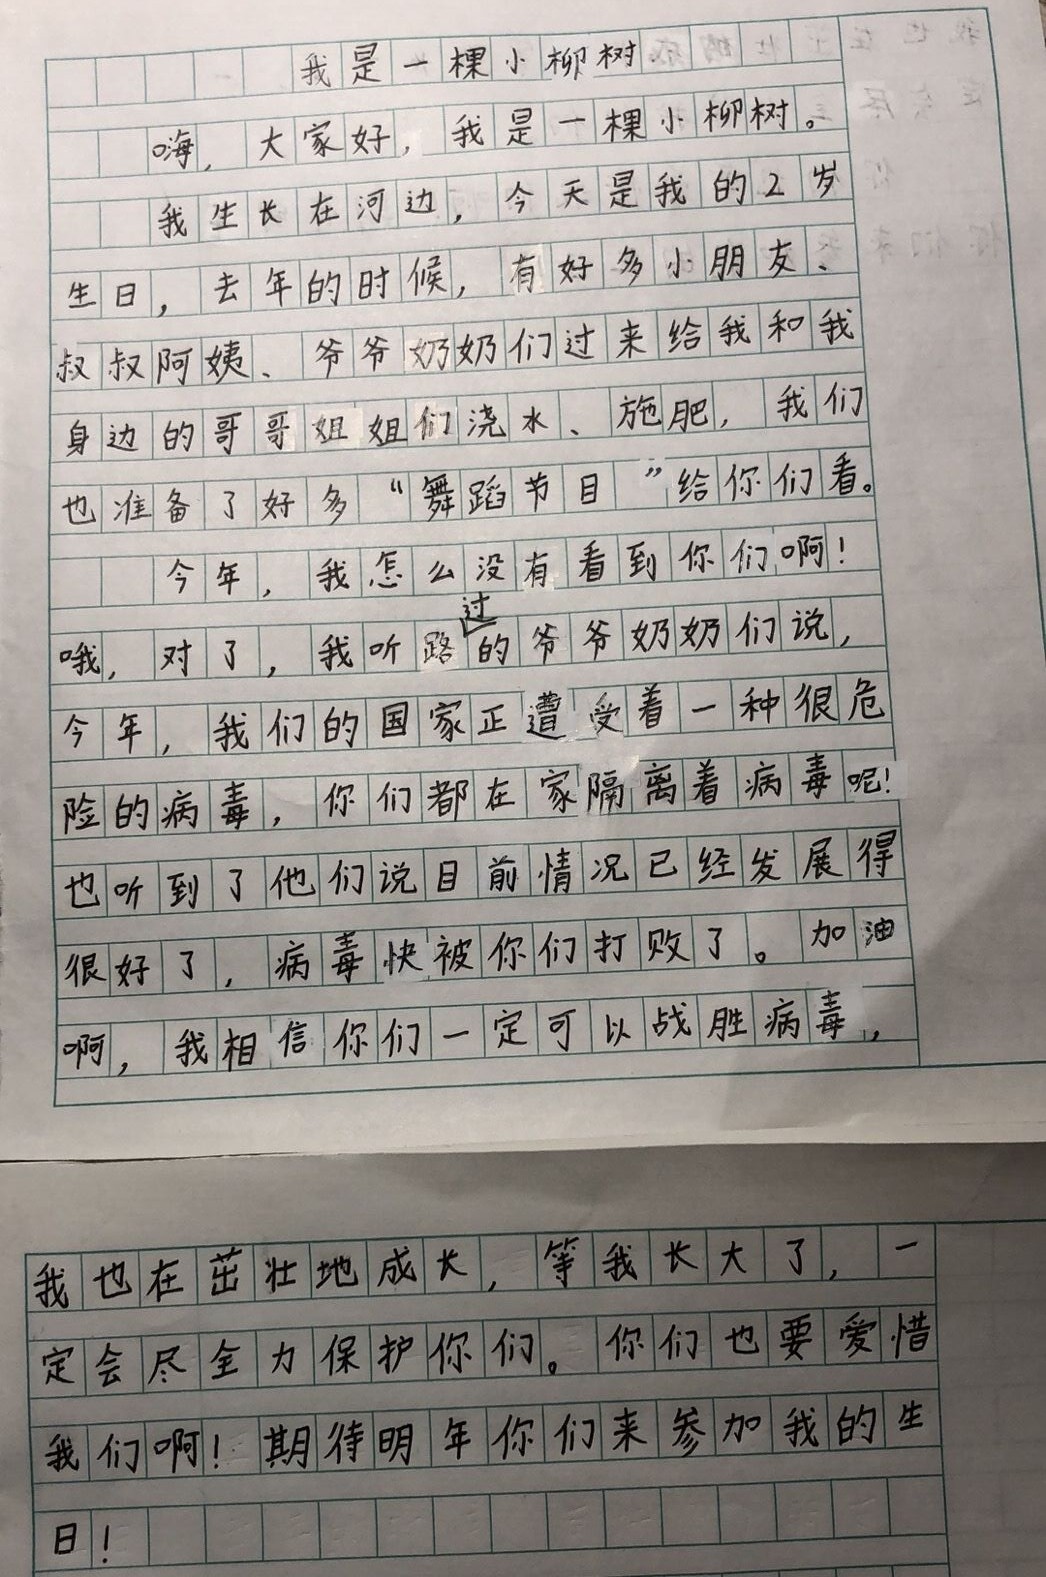 我是一棵小柳树
嗨，大家好，我是一棵小柳树。
我生长在河边，今天是我的2岁
生日，去年的时候，有好多小朋友、
叔叔阿姨、爷爷奶奶们过来给我和我
身边的哥哥姐姐们浇水、施肥，我们
也准备了好多“舞蹈节目”给你们看。
今年，我怎么没有看到你们啊！
哦，对了，我听路过的爷爷奶奶们说，
今年，我们的国家正遭受着一种很危
险的病毒，你们都在家隔离着病毒呢！
也听到了他们说目前情况已经发展得
很好了，病毒快被你们打败了。加油
啊，我相信你们一定可以战胜病毒，
我也在茁壮地成长，等我长大了，一
定会尽全力保护你们。你们也要爱惜
我们啊！期待明年你们来参加我的生
日！